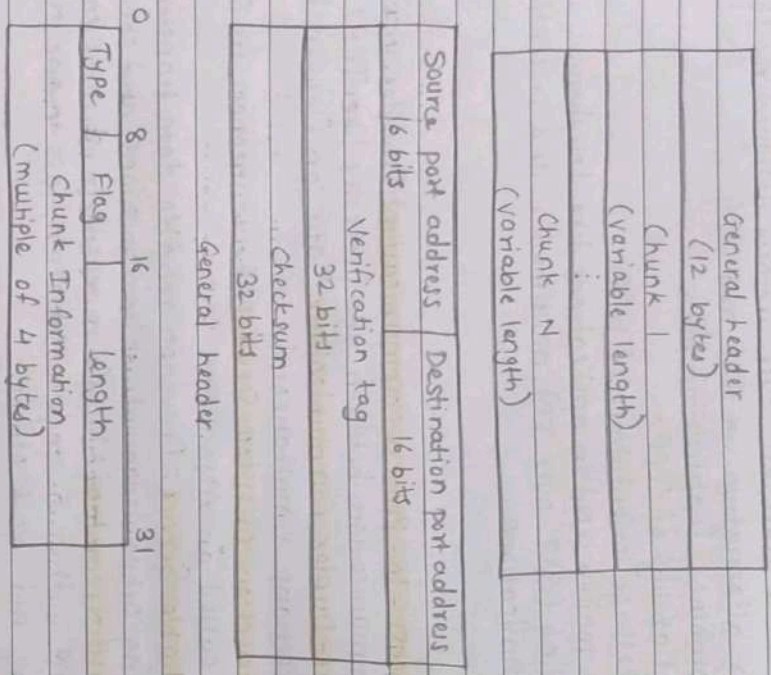 General header
(12 bytes)
Chunk 1
(variable length)
⋮
Chunk N
(variable length)
Source port address Destination port address
16 bits 16 bits
Verification tag
32 bits
Checksum
32 bits
General header
0 8 16 31
Type Flag length
Chunk Information
(multiple of 4 bytes)